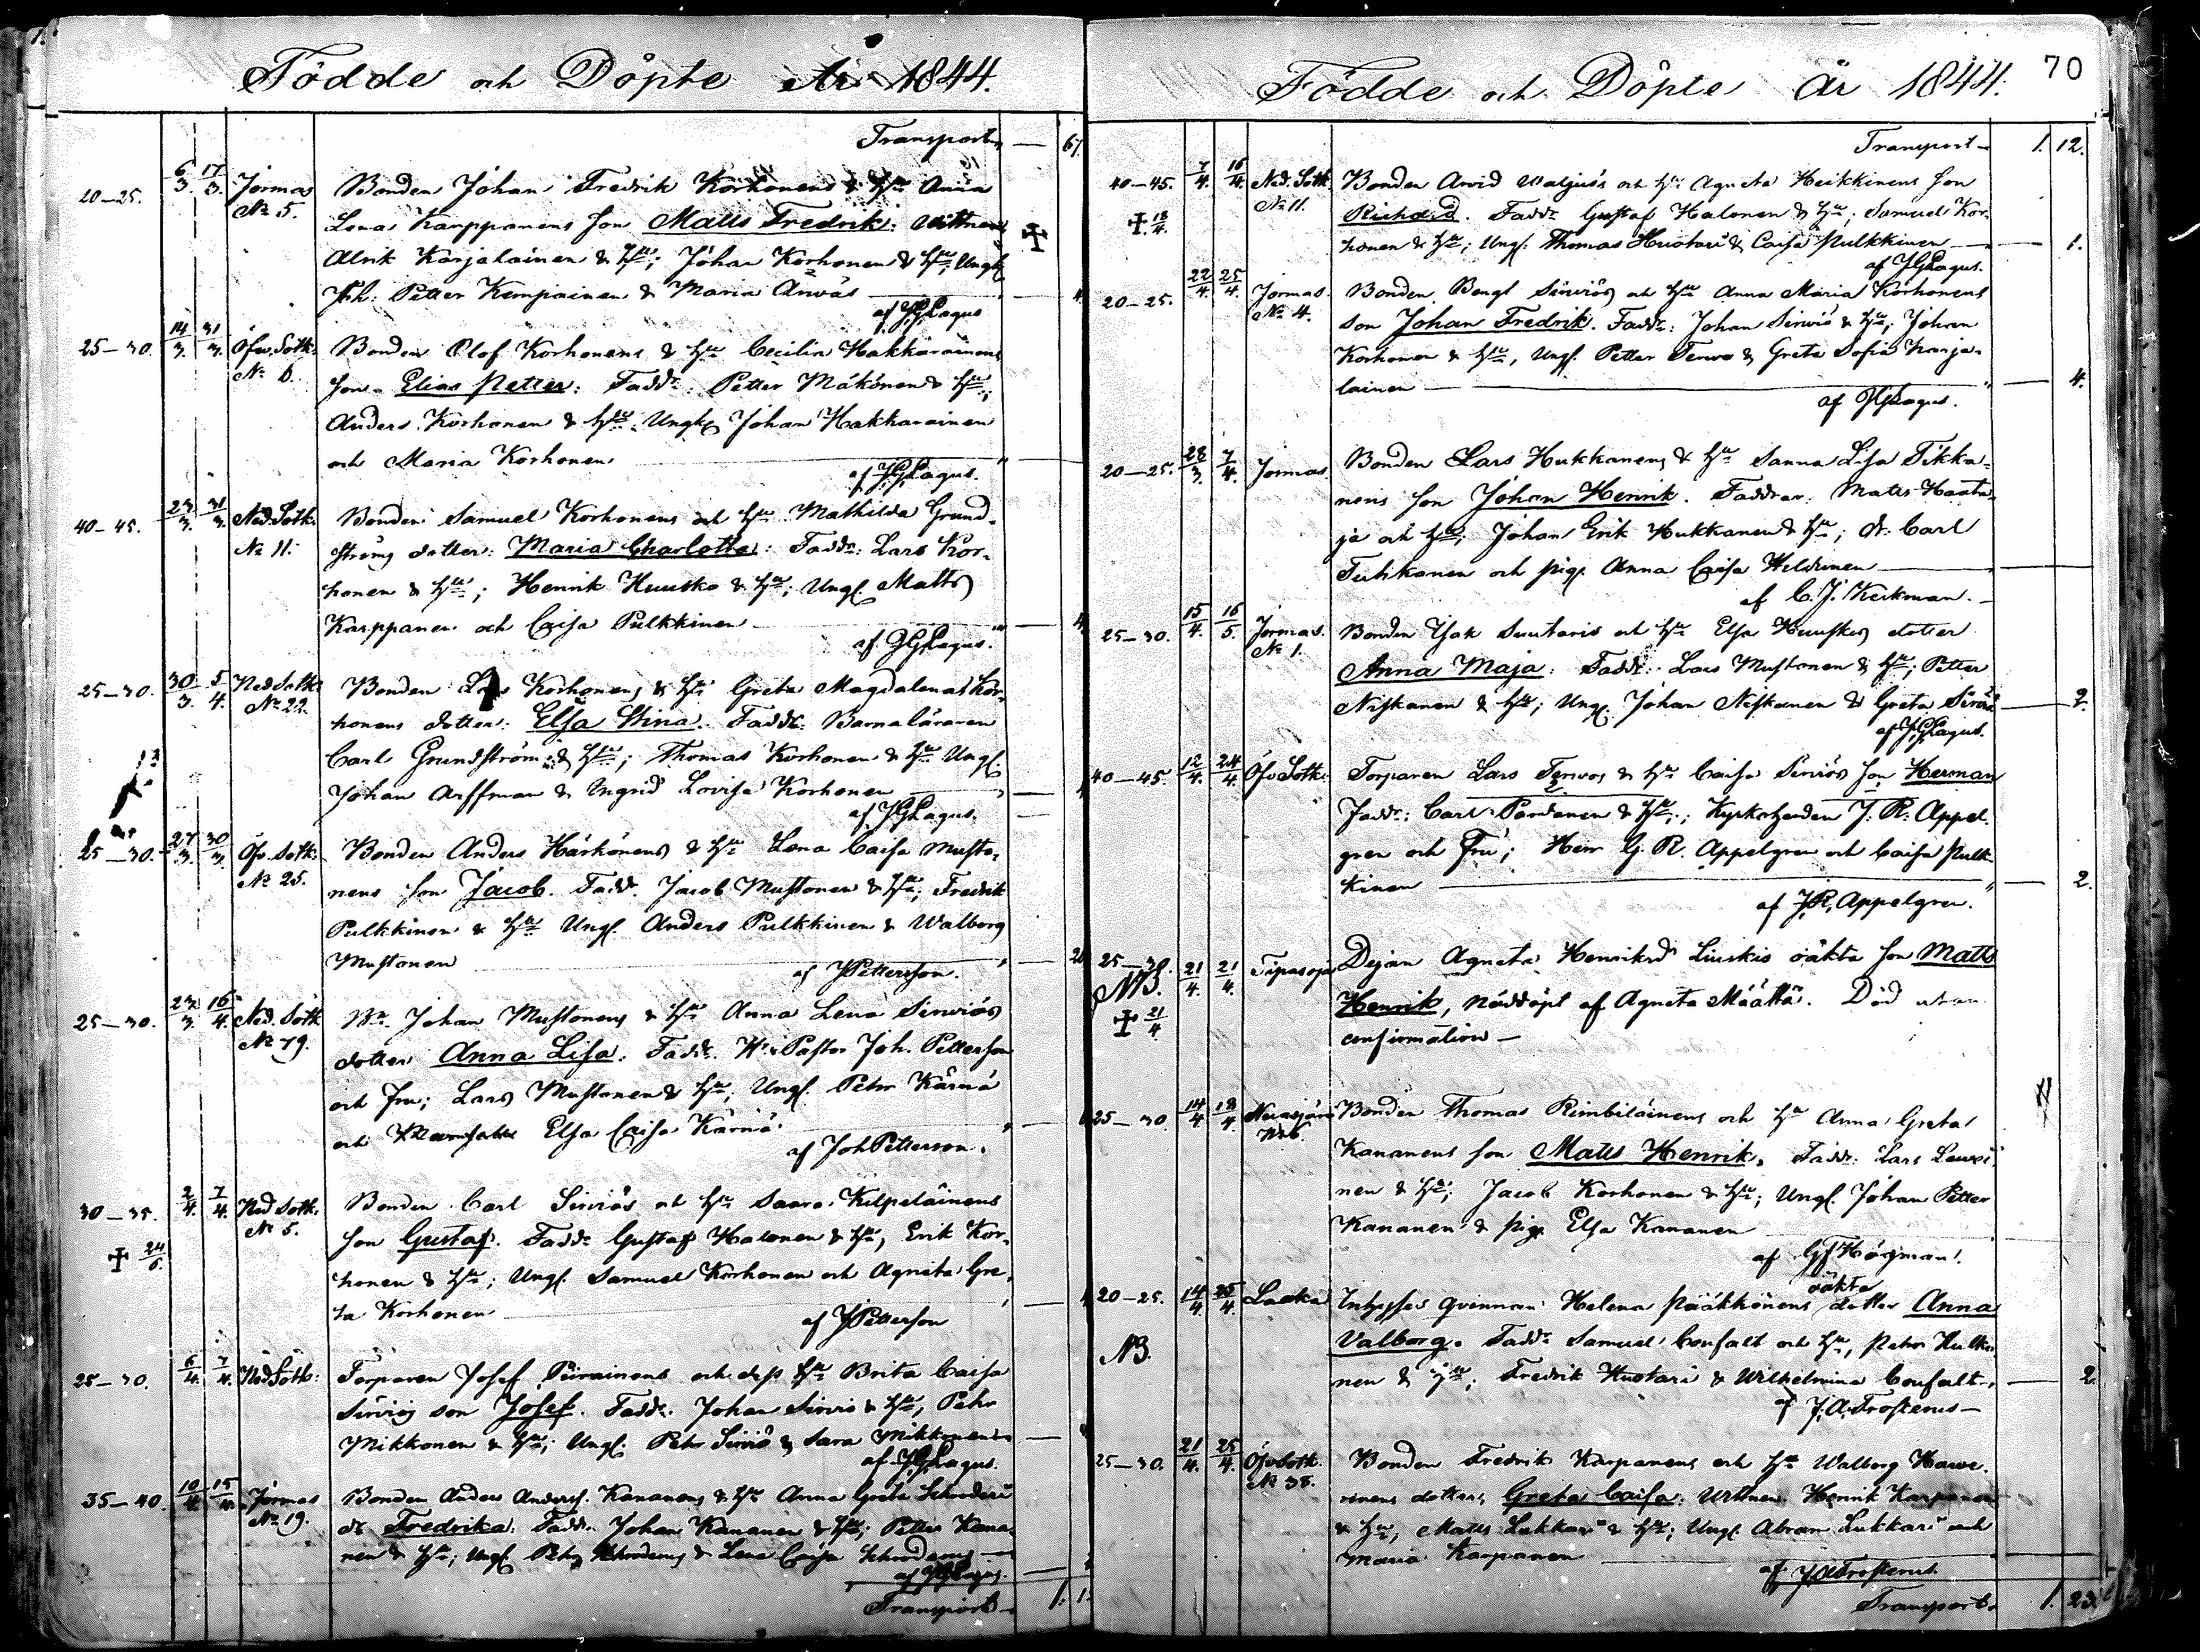 Födde och Döpte År 1844.
Transport — 67.
20—25. 6/3. 17/3. Jormas Bonden Johan Fredrik Korhonens & hu Anna
No 5. Lena Karppanens son Matts Fredrik. Wittnen
Alrik Karjalainen & hu; Johan Korhonen & hu; Ungk
Joh: Petter Kempainen & Maria — 4.
af JGLagus
25—30. 14/3. 31/3. Öfv. Sotk. Bonden Olof Korhonens & hu Cecilia Hakkarainens
No 6. son Elias Petter. Faddr. Petter Mäkönen & hu;
Anders Korhonen & hu Ungk Johan Hakkarainen
och Maria Korhonen —
af JGLagus.
40—45. 23/3. 31/3. Ned. Sotk. Bonden Samuel Korhonens och hu Mathilda Grund-
No 11. ströms dotter: Maria Charlotta: Faddr: Lars Kor-
honen & hu; Henrik Huusko & hu; Ungl. Matts
Karppanen och Caisa Pulkkinen — 4.
af JGLagus.
25—30. 30/3 5/4. Ned Sotk. Bonden Lars Korhonens & hu Greta Magdalena Kor-
No 22. honens dotter: Elsa Stina. Faddr. Barnaläraren
Carl Grundström & hu; Thomas Korhonen & hu Ungl.
Johan Arffman & Ingrid Lovisa Korhonen —
af JGLagus.
25—30. 27/3. 30/3. Öfv. Sotk. Bonden Anders Härkönens & hu Lena Caisa Musto-
No 25. nens son Jacob. Faddr. Jacob Mustonen & hu; Fredrik
Pulkkinen & hu Ungl. Anders Pulkkinen & Walborg
Mustonen —
af JPettersson.
25—30. 27/3. 16/4. Ned. Sotk. Johan Mustonens & hu Anna Lena Sirviös
No 79. dotter Anna Lisa. Faddr. Pastor Joh. Petterson
och fru; Lars Mustonen & hu; Ungl. Petr Kärnä
och Elsa Caisa Kärnä.
af JohPetterson.
30—35. 2/4. 7/4. Ned Sotk. Bonden Carl Sirviös och hu Saara Kilpeläinens
No 5. son Gustaf. Faddr Gustaf Halonen & hu; Erik Kor-
honen & hu; Ungl. Samuel Korhonen och Agneta Gre-
ta Korhonen —
af JPetterson
25—30. 6/4. 7/4. Ned Sotk. Torparen Josef Piirainens och dess hu Brita Caisa
Sirviös son Josef. Faddr. Johan Sirviö & hu; Petr
Mikkonen & hu; Ungl. Petr Sirviö & Sara Mikkonen —
af JGLagus.
35—40. 10/4. 15/4. Jormas Bonden Anders Anderss. Kananens & hu Anna Greta Schroderi
No 19. dr Fredrika. Faddr. Johan Kananen & hu; Petter Kana-
nen & hu; Ungl. Petr Schroderus & Lena Caisa Schroderus —
af JGLagus.
Transport — 1.
Födde och Döpte År 1844. 70
Transport — 1. 12.
40—45. 7/4. 16/4. Ned. Sotk. Bonden Arvid Waljus's och hu Agneta Heikkinens son
18/4. No 11. Richard. Faddr Gustaf Halonen & hu; Samuel Kor-
honen & hu; Ungl. Thomas Huotari & Caisa Pulkkinen — 1.
af JGLagus.
20—25. 22/4. 25/4. Jormas. Bonden Bengt Sirviös och hu Anna Maria Korhonens
No 4. son Johan Fredrik. Faddr: Johan Sirviö & hu; Johan
Korhonen & hu, Ungl. Petter Tervo & Greta Sofia Karja-
lainen — 4.
af JGLagus.
20—25. 28/3. 7/4. Jormas. Bonden Lars Hukkanens & hu Sanna Lisa Tikka-
nens son Johan Henrik. Faddrar: Matts Haata-
ja och hu; Johan Erik Hukkanen & hu; dr. Carl
Tuhkanen och pig. Anna Caisa —
af C.J. Keckman.
25—30. 15/4. 16/5. Jormas. Bonden Isak Suutaris och hu Elsa Huuskos dotter
No 1. Anna Maja. Faddr.: Lars Mustonen & hu; Petter
Niskanen & hu; Ung. Johan Niskanen & Greta Sirviö — 2.
af JGLagus.
40—45. 12/4. 24/4. Öfv Sotk. Torparen Lars Tervos & hu Caisa Sirviös son Herman
Faddr.: Carl Pardanen & hu; Kyrkoherden J. R. Appel-
gren och Fru; Herr G. R. Appelgren och Caisa Pulk-
kinen — 2.
af J.R. Appelgren.
25—30. 21/4. 21/4. Tipasoja Dejan Agneta Henriksdr Liuskis oäkta son Matts
NB. Henrik, nöddöpt af Agneta Määttä. Död utan
21/4 confirmation —
25—30. 14/4 18/4 Bonden Thomas Rimbiläinens och hu Anna Greta
No 6. Kananens son Matts Henrik. Faddr: Lars
nen & hu; Jacob Korhonen & hu; Ungl. Johan Petter
Kananen & pig. Elsa Kananen
af Högman.
20—25. 14/4 25/4. Laaka Inhyses qvinnan Helena Pääkkönens oäkta dotter Anna
NB. Valborg. Faddr Samuel Confalt och hu, Petr
nen & hu; Fredrik Huotari & Wilhelmina Confalt — 2
af J.A. Frosterus —
25—30. 21/4. 25/4. Öfv Sotk. Bonden Fredrik Karpanens och hu Walborg Hawe-
No 38. rinens dotter, Greta Caisa. Wittnen Henrik Karpanen
& hu; Matts Lukkari & hu; Ungl. Abram Lukkari och
Maria Karpanen —
af JAFrosterus.
Transport. 1. 23.